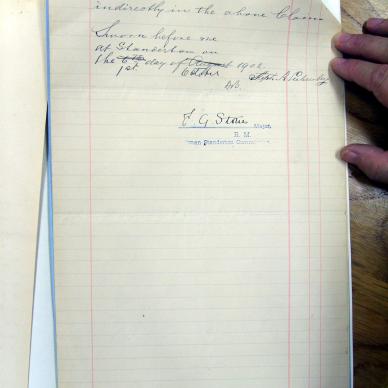 indirectly in the above Claim
Sworn before me
at Standerton on
the 6th day of August 1902.
1st. October
F. G. Stone
Major,
R. M.
Standerton